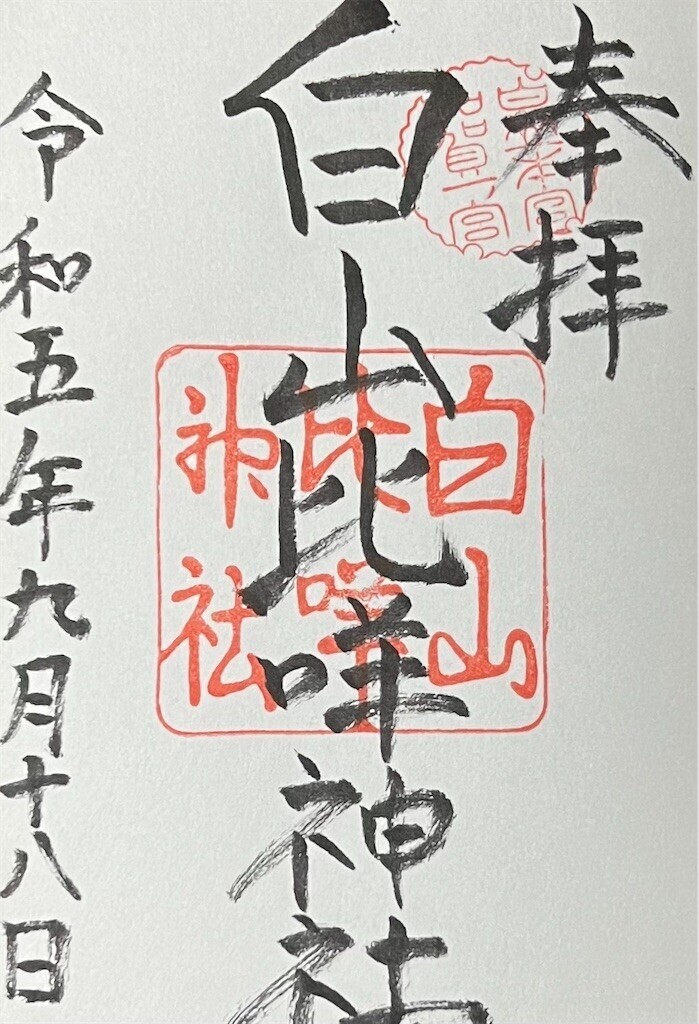 奉拝
白山比咩神社
令和五年九月十八日
白山
比咩
神社